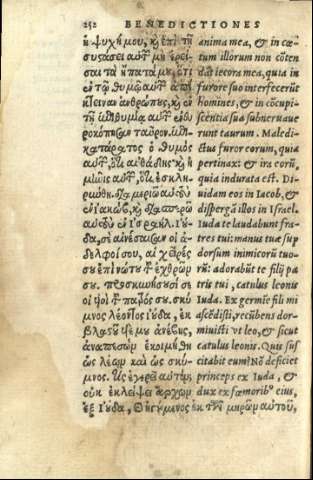 252 BENEDICTIONES
ἡ ψυχή μου, κ̀ ἐπὶ τῇ
συστάσει αὐτῶν μὴ ἐρεί-
σαι τὰ ἥπατά μου, ὅτι
ἐν τῷ θυμῷ αὐτῶν ἀπέ-
κτειναν ἀνθρώπους, κ̀ ἐν
τῇ ἐπιθυμίᾳ αὐτῶν ἐνευ-
ροκόπησαν ταῦρον. ἐπι-
κατάρατος ὁ θυμὸς
αὐτῶν, ὅτι αὐθάδης, κ̀ ἡ
μῆνις αὐτῶν, ὅτι ἐσκλη-
ρύνθη. διαμεριῶ αὐτοὺς
ἐν ἰακώβ, κ̀ διασπερῶ
αὐτοὺς ἐν ἰσραήλ. Ἰού-
δα, σὲ αἰνέσαισαν οἱ ἀ-
δελφοί σου, αἱ χεῖρές
σου ἐπὶ νώτου τῶν ἐχθρῶν
σου. προσκυνήσουσί σοι
οἱ υἱοὶ τοῦ πατρός σου. σκύ-
μνος λέοντος ἰούδα, ἐκ
βλαστοῦ υἱέ μου ἀνέβης,
ἀναπεσὼν ἐκοιμήθης
ὡς λέων καὶ ὡς σκύ-
μνος. τίς ἐγερεῖ αὐτόν;
οὐκ ἐκλείψει ἄρχων
ἐξ ἰούδα, κ̀ ἡγούμενος ἐκ τῶν μηρῶν αὐτοῦ,
anima mea, & in cœ-
tum illorum non cōten
dāt iecora mea, quia in
furore suo interfecerūt
homines, & in cōcupi-
scentia sua subneruaue
runt taurum. Maledi-
ctus furor eorum, quia
pertinax: & ira eorū,
quia indurata est. Di-
uidam eos in Iacob, &
dispergā illos in Israel.
Iuda te laudabunt fra-
tres tui: manus tuæ sup
dorsum inimicorū tuo-
rū: adorabūt te filij pa
tris tui, catulus leonis
Iuda. Ex germīe fili mi
ascēdisti, recūbens dor-
miuisti vt leo, & sicut
catulus leonis. Quis sus
citabit eum? Nō deficiet
princeps ex Iuda, &
dux ex fæmorib⁹ eius,